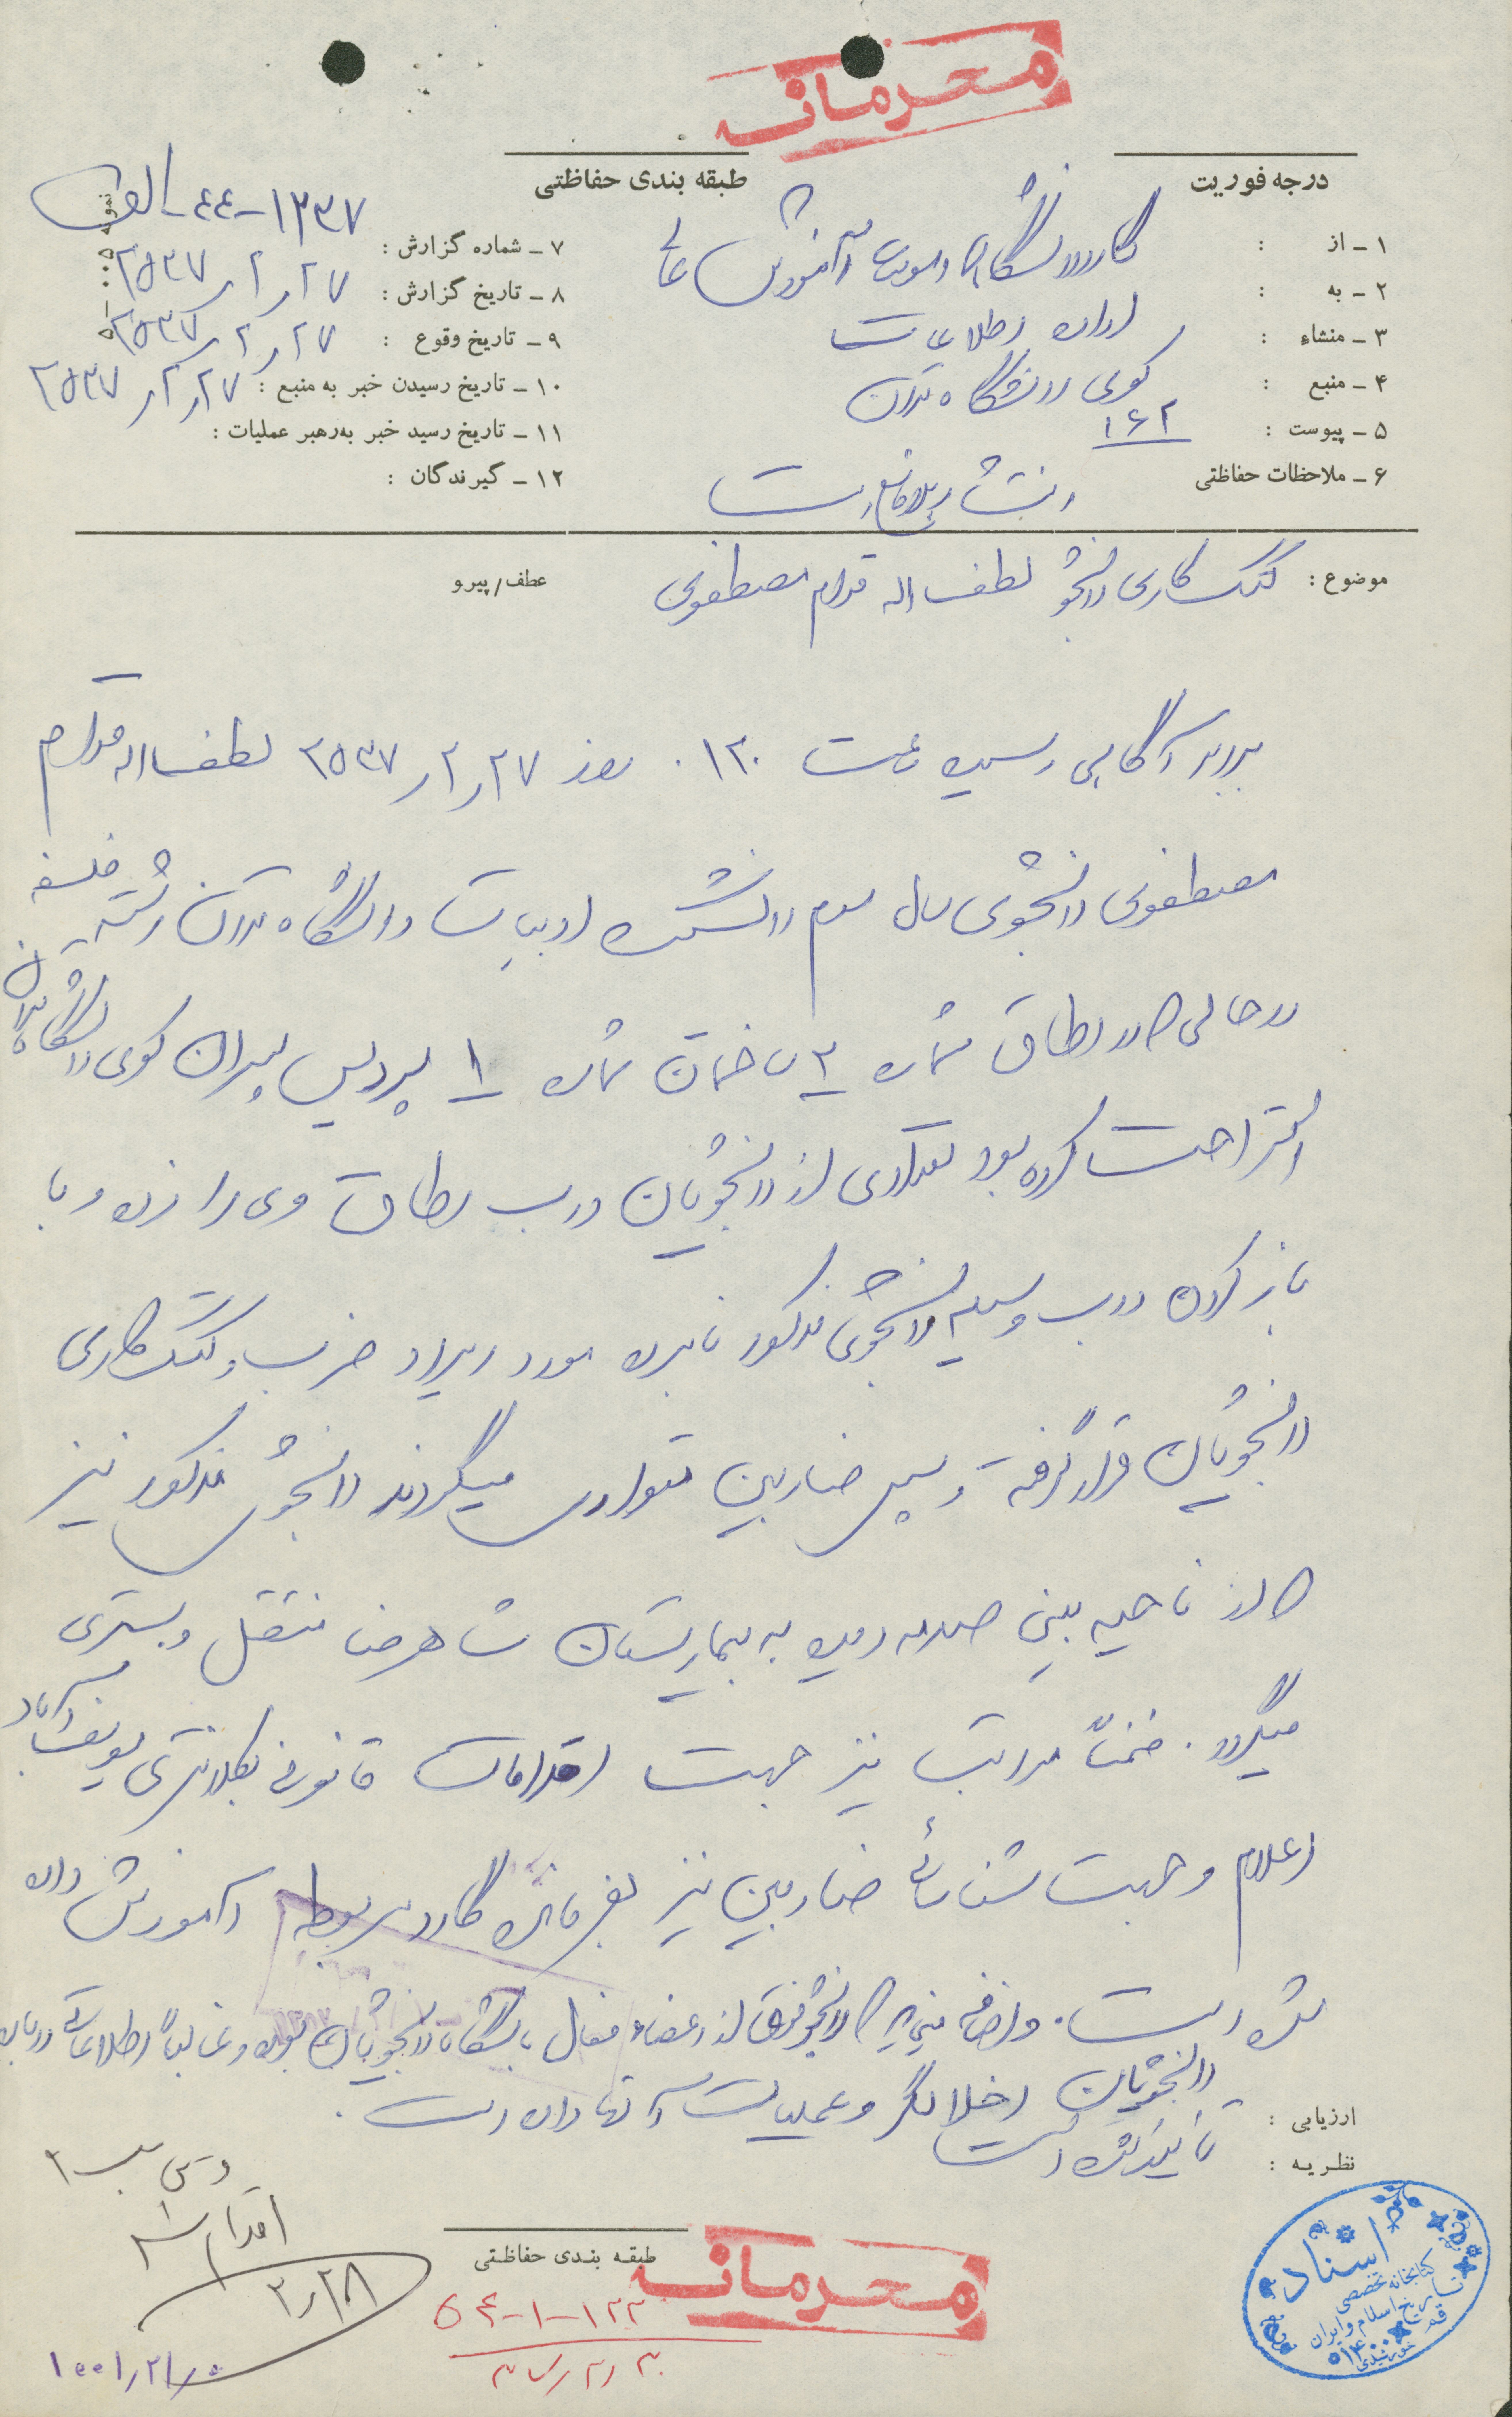 محرمانه
درجه فوریت
طبقه بندی حفاظتی
۱ - از : گارد دانشگاه و آموزش عالی
۲ - به : اداره اطلاعات
۳ - منشاء : کوی دانشگاه تهران
۴ - منبع : ۱۶۲
۵ - پیوست :
۶ - ملاحظات حفاظتی انتشار بلامانع است
۷ - شماره گزارش : ۱۲۳۷-۴۴-الف
۸ - تاریخ گزارش : ۲۷ر۲ر۲۵۳۷
۹ - تاریخ وقوع : ۲۷ر۲ر۲۵۳۷
۱۰ - تاریخ رسیدن خبر به منبع : ۲۷ر۲ر۲۵۳۷
۱۱ - تاریخ رسید خبر به‌رهبر عملیات :
۱۲ - گیرندگان :
موضوع : کتک کاری دانشجو لطف اله قوام مصطفوی
عطف/پیرو
برابر آگاهی رسیده ساعت ۱۲۰۰ روز ۲۷ر۲ر۲۵۳۷ لطف اله قوام
مصطفوی دانشجوی سال سوم دانشکده ادبیات دانشگاه تهران رشته فلسفه
در حالی که در اطاق شماره ۲ ساختمان شماره ۱ پردیس پسران کوی دانشگاه تهران
استراحت کرده بود تعدادی از دانشجویان درب اطاق وی را زده و با
باز کردن درب وسیله دانشجوی مذکور نامبرده مورد ایراد ضرب و کتک کاری
دانشجویان قرار گرفته و سپس ضاربین متواری میگردند دانشجوی مذکور نیز
که از ناحیه بینی صدمه دیده به بیمارستان شاهرضا منتقل و بستری
میگردد. ضمناً مراتب نیز جهت اقدامات قانونی بکلانتری یوسف آباد
اعلام و جهت شناسائی ضاربین نیز بفرمانده گارد مربوطه آموزش داده
شده است. و اضافه مینماید که دانشجو فوق از اعضاء فعال باشگاه دانشجویان بوده و غالباً اطلاعاتی درباره
دانشجویان اخلالگر و عملیات آنها داده است.
ارزیابی :
نظریه : تائید شده است
اقدام شد
۲ر۲۸
طبقه بندی حفاظتی
محرمانه
اسناد
کتابخانه تخصصی
تاریخ اسلام و ایران
قم